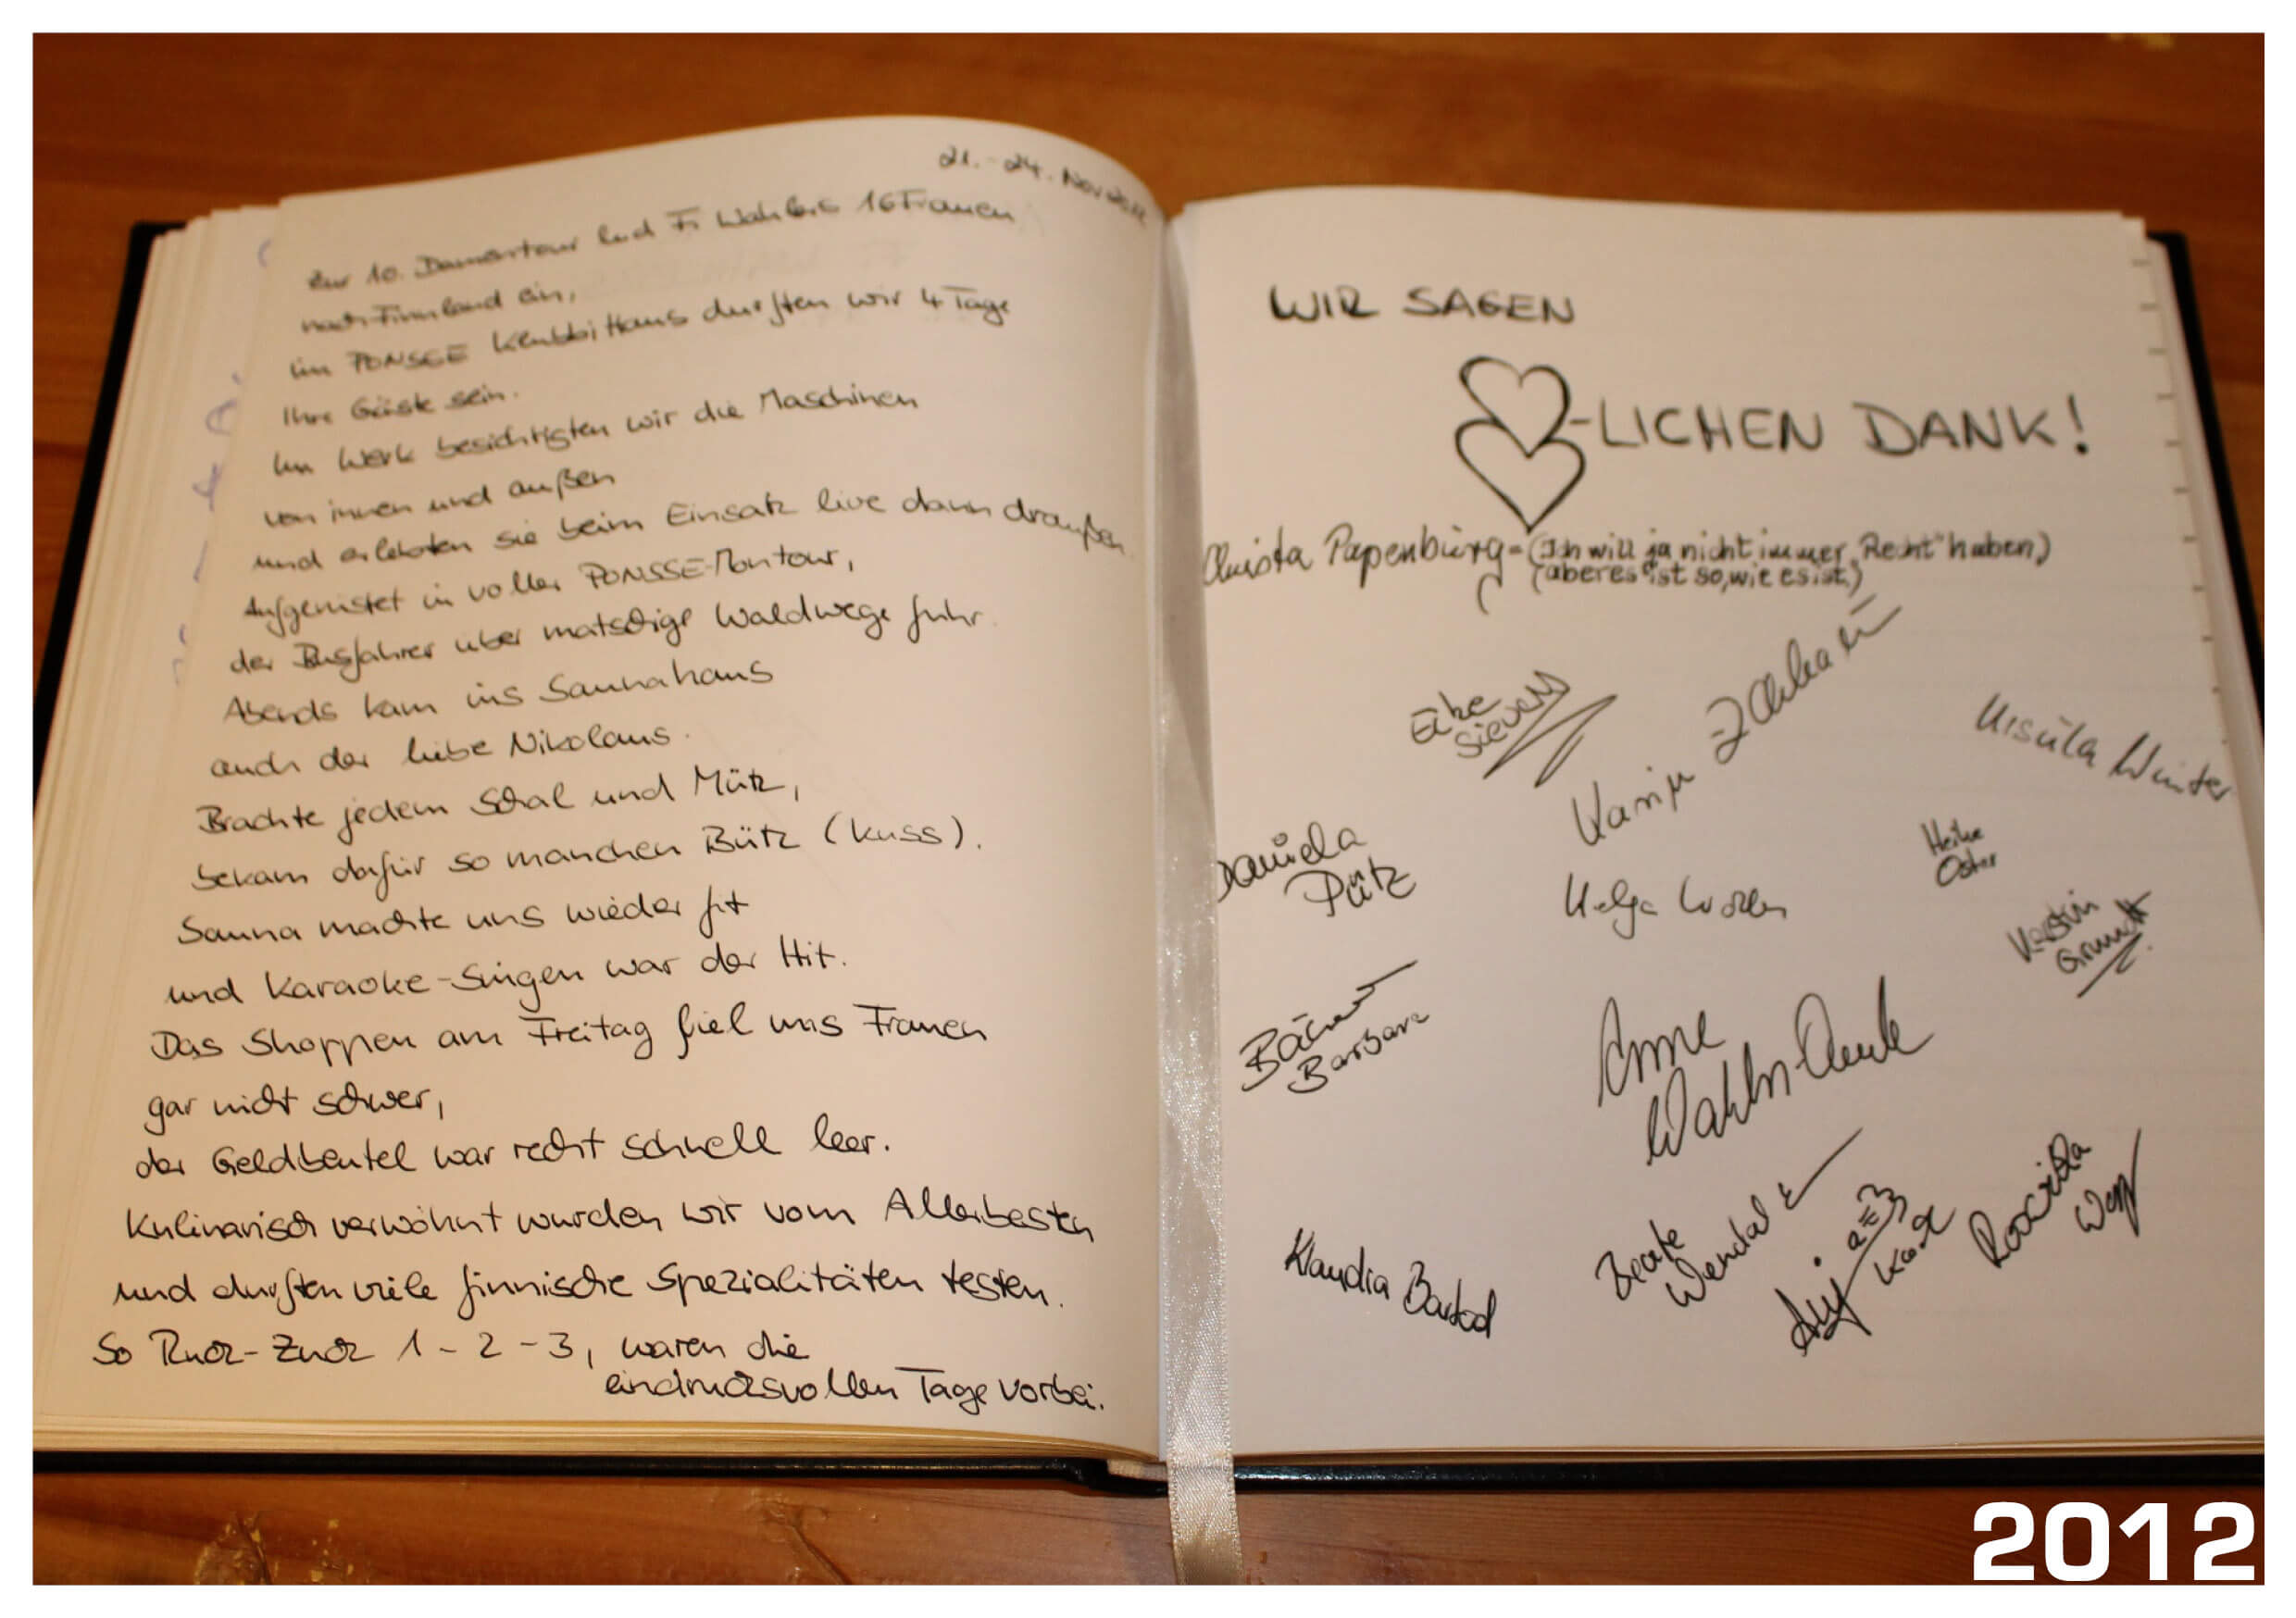 21.-24. Nov 2012
Zur 10. Damentour lud Fi Wahlers 16 Frauen
nach Finnland ein,
im PONSSE Klubbi Haus durften wir 4 Tage
Ihre Gäste sein.
Im Werk besichtigten wir die Maschinen
von innen und außen
und erlebten sie beim Einsatz live dann draußen
Aufgerüstet in voller PONSSE-Montour,
der Busfahrer über matschige Waldwege fuhr.
Abends kam ins Saunahaus
auch der liebe Nikolaus.
Brachte jedem Schal und Mütz,
bekam dafür so manchen Bütz (Kuss).
Sauna machte uns wieder fit
und Karaoke-Singen war der Hit.
Das Shoppen am Freitag fiel uns Frauen
gar nicht schwer,
der Geldbeutel war recht schnell leer.
Kulinarisch verwöhnt wurden wir vom Allerbesten
und durften viele finnische Spezialitäten testen.
So Ruck-Zuck 1-2-3, waren die
eindrucksvollen Tage vorbei.
WIR SAGEN
-LICHEN DANK!
Christa Papenburg = (Ich will ja nicht immer "Recht" haben,)
(aber es ist so, wie es ist.)
Eike
Sievers
Ursula Winter
Daniela
Pütz
Helga
Heike
Oster
Kerstin
Grundt
Barbara
Anne
Klaudia
Beate
Roswitha
2012